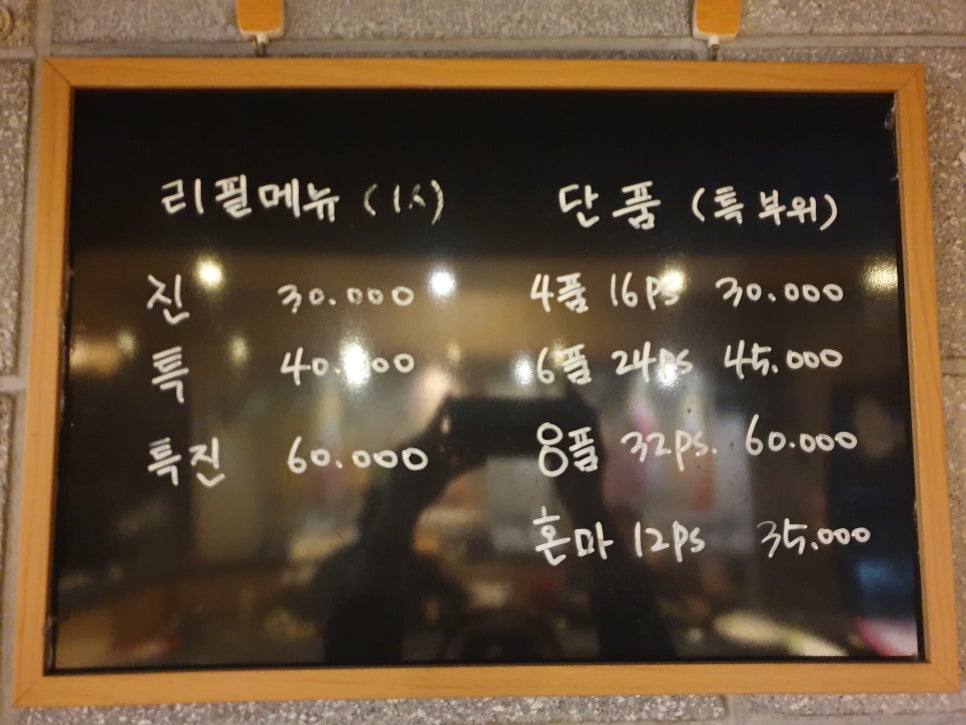 리필메뉴 (1人)
진 30.000
특 40.000
특진 60.000
단품 (특부위)
4품 16ps 30.000
6품 24ps 45.000
8품 32ps. 60.000
혼마 12ps 35.000